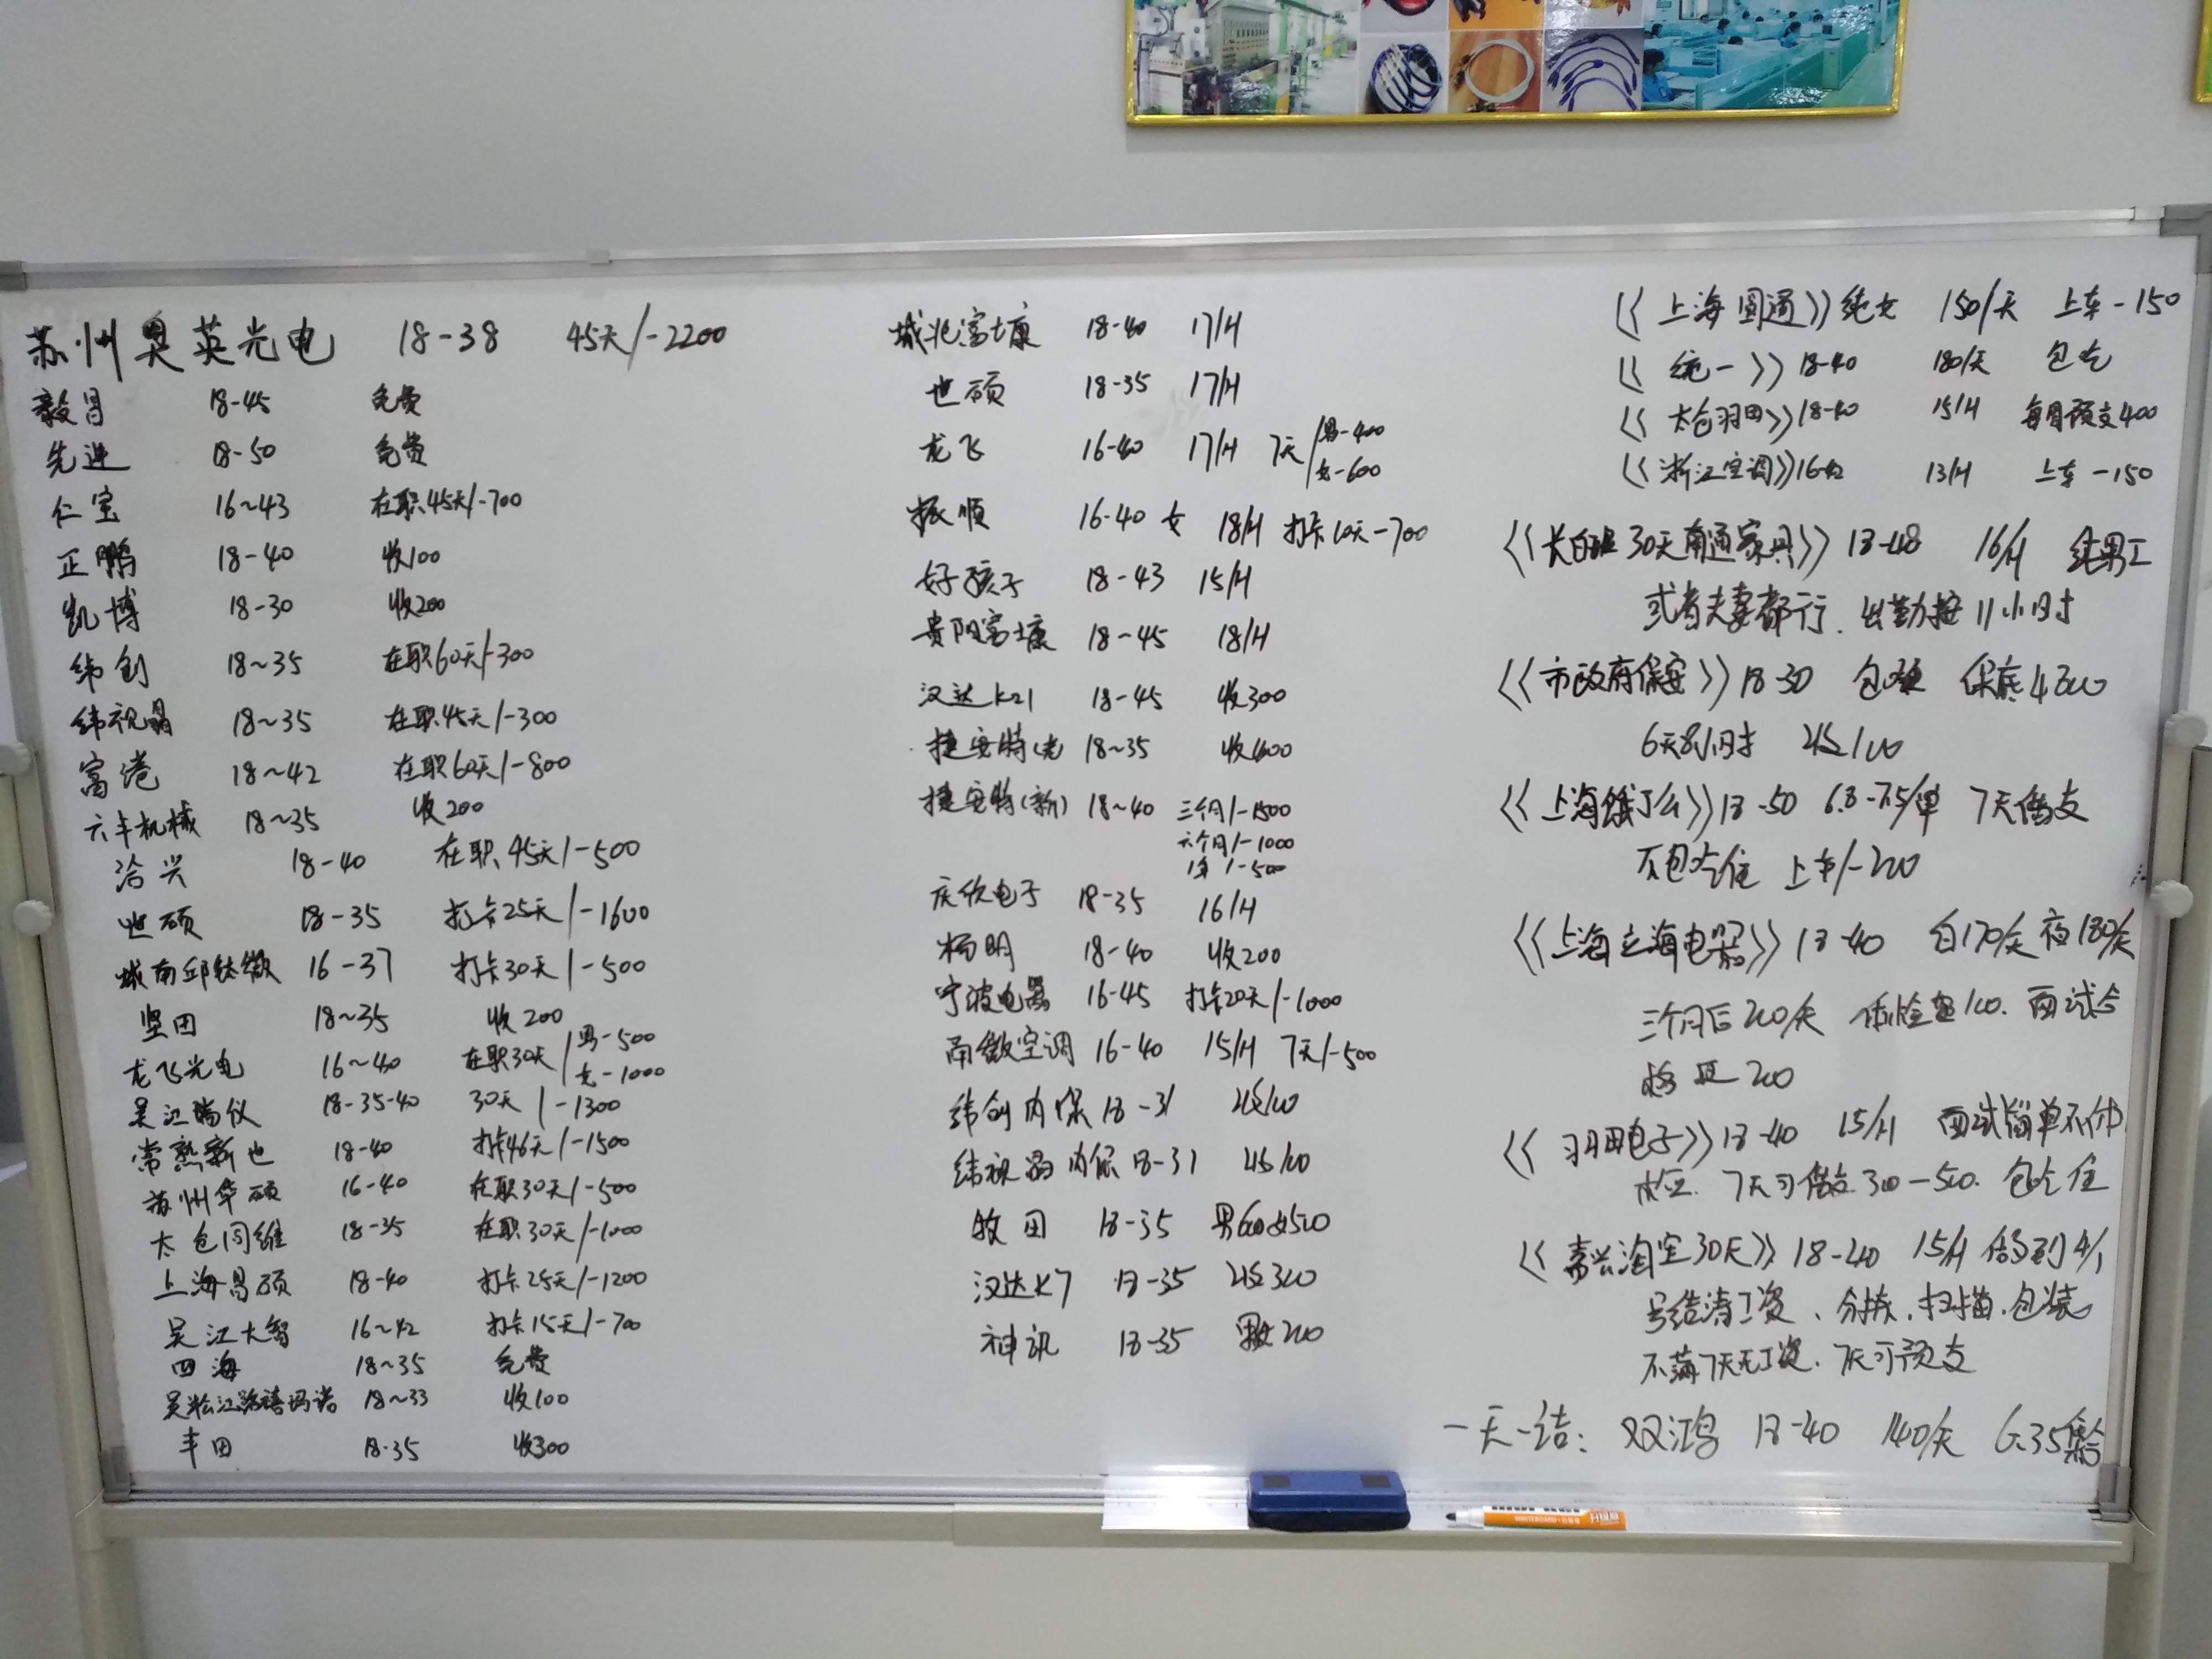 苏州奥英光电 18-38 45天/-2200
毅昌 18-45 免费
先进 18-50 免费
仁宝 16~43 在职45天/-700
正鹏 18-40 收100
凯博 18-30 收200
纬创 18~35 在职60天/-300
纬视晶 18~35 在职45天/-300
富港 18~42 在职60天/-800
六丰机械 18~35 收200
洽兴 18-40 在职45天/-500
世硕 18-35 打卡25天/-1600
城南邱钛微 16-37 打卡30天/-500
坚田 18~35 收200
龙飞光电 16~40 在职30天/男-500
女-1000
吴江瑞仪 18-35-40 30天/-1300
常熟新也 18-40 打卡46天/-1500
苏州华硕 16-40 在职30天/-500
太仓同维 18-35 在职30天/-1000
上海昌硕 18-40 打卡25天/-1200
吴江大智 16~42 打卡15天/-700
四海 18~35 免费
吴淞江路禧玛诺 18~33 收100
丰田 18-35 收300
城北富士康 18-40 17/H
世硕 18-35 17/H
龙飞 16-40 17/H 7天/男-400
女-600
振顺 16-40 女 18/H 打卡10天-700
好孩子 18-43 15/H
贵阳富士康 18-45 18/H
汉达K21 18-45 收300
捷安特(老 18~35 收400
捷安特(新) 18~40 三个月/-1500
六个月/-1000
1年/-500
庆欣电子 18-35 16/H
杨明 18-40 收200
宁波电器 16-45 打卡20天/-1000
南微空调 16-40 15/H 7天/-500
纬创内保 18-31 收100
纬视晶内保 18-31 收100
牧田 18-35 男600女500
汉达K7 18-35 收300
神讯 18-35 男收200
《上海圆通》纯女 150/天 上车-150
《统一》18-40 180/天 包吃
《太仓羽田》18-40 15/H 每周预支400
《浙江空调》16-42 13/H 上车-150
《长白班30天南通家具》18-48 16/H 纯男工
或者夫妻都行. 出勤按11小时
《市政府保安》18-30 保底4300
6天8小时 收100
《上海饿了么》18-50 6.8-7.5/单 7天借支
不包吃住 上车/-200
《上海立海电器》18-40 白170/天 夜180/天
三个月后200/天 体检费100. 面试合
格 返200
《羽田电子》18-40 15/H 面试简单不体
检. 7天可借支300-500. 包吃住
《嘉兴淘宝30天》18-40 15/H 做到4/1
号结清工资、分拣.扫描.包装
不满7天无工资. 7天可预支
一天一结: 双鸿 18-40 140/天